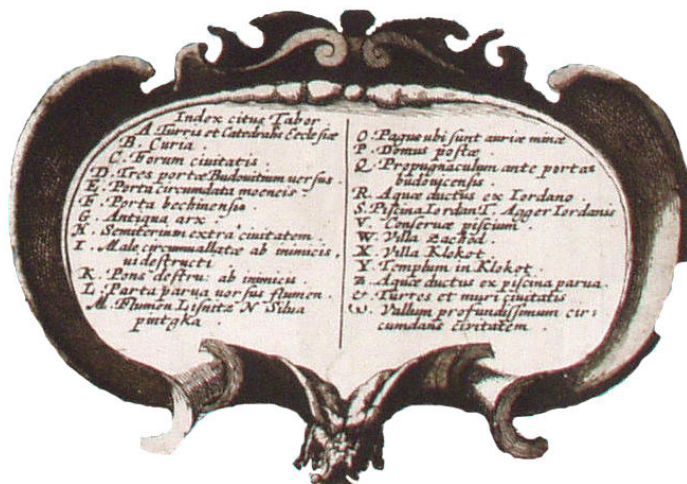 Index citus Tabor
A. Turris et Catedralis Ecclesiæ
B. Curia.
C. Forum ciuitatis.
D. Tres portæ Budouitium uersus.
E. Porta circumdata moeneis.
F. Porta bechinensis
G. Antiqua arx.
H. Semiterium extra ciuitatem.
I. Male circumuallatæ ab inimicis,
ui destructi
K. Pons destru: ab inimicis.
L. Parta parua uorsus flumen.
M. Flumen Lisnitz N Silua
pintgka
O. Pagus ubi sunt auriæ minæ
P. Domus postæ.
Q. Propugnaculum ante portas
budouicensis
R. Aquæ ductus ex Iordano.
S. Piscina Iordan T. Agger Iordanis
V. Conseruæ piscium.
W. Villa Zachod.
X Villa Klokot.
Y Templum in Klokot.
Z. Aquæ ductus ex piscina parua.
& Turres et muri ciuitatis
ω. Vallum profundissimum cir:
cumdans civitatem.